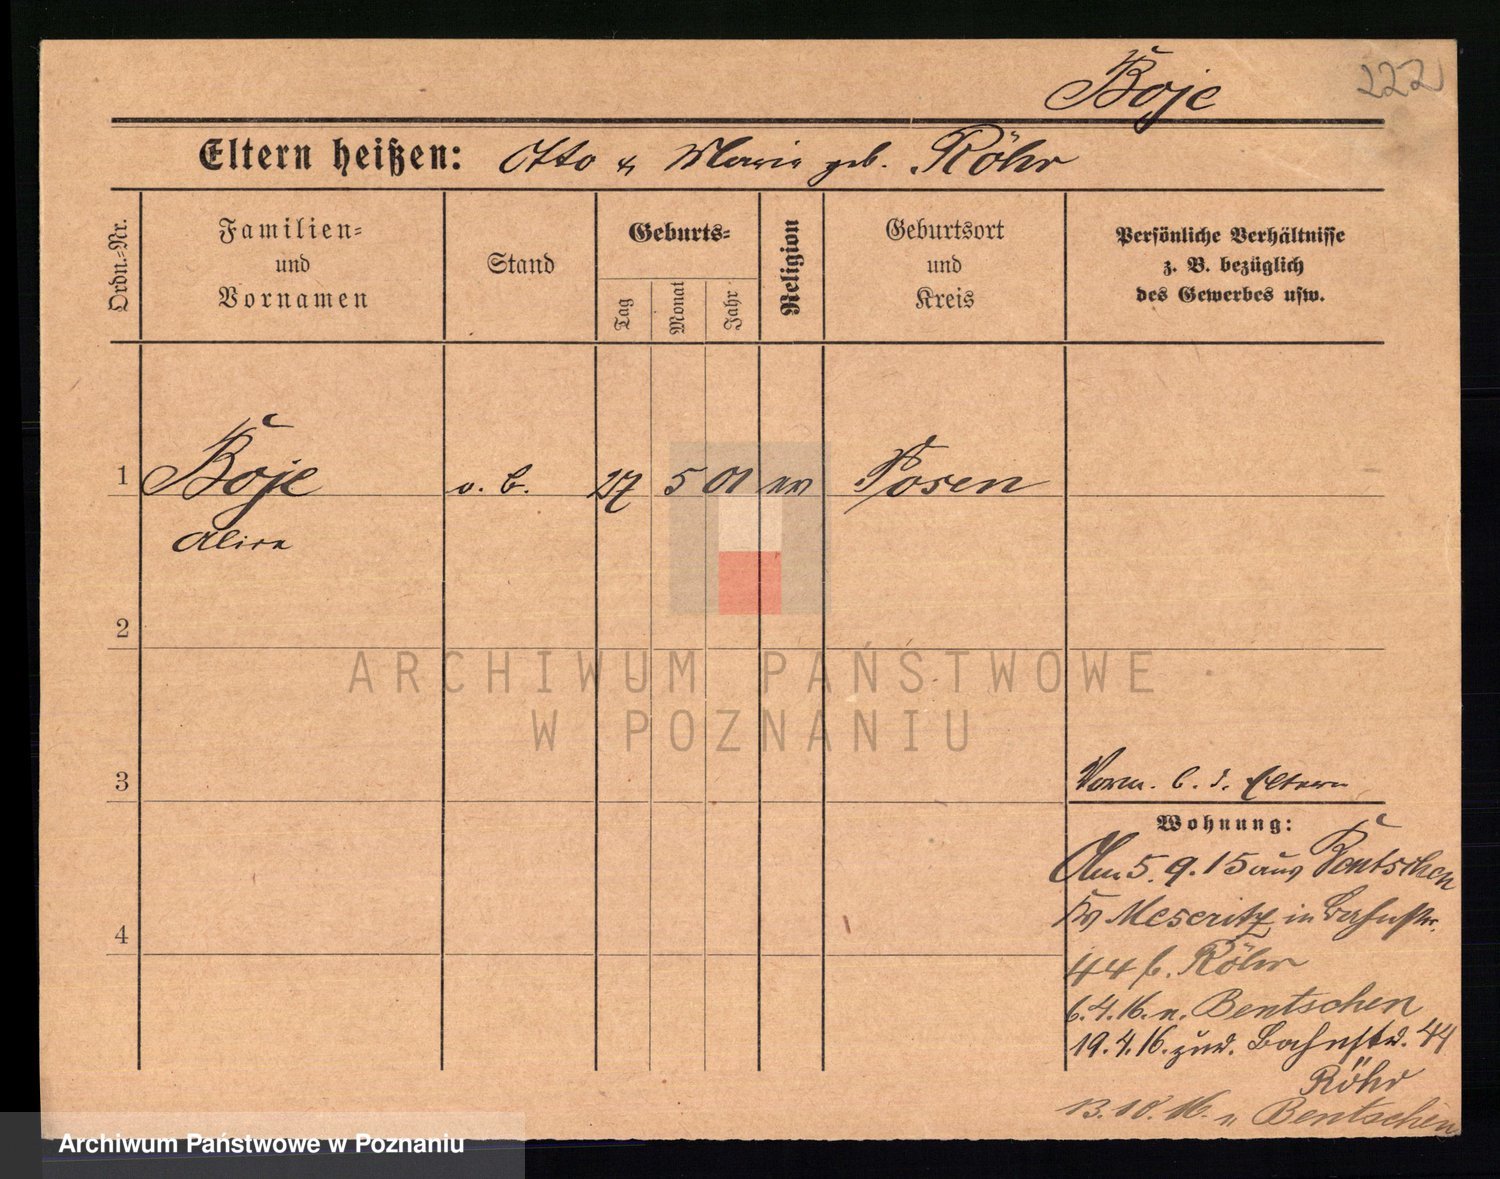 222
Boje
Eltern heißen: Otto & Marie geb. Röhr
Ordn.-Nr.
Familien- und Vornamen
Stand
Geburts-
Tag
Monat
Jahr
Religion
Geburtsort und Kreis
Persönliche Verhältnisse
z. B. bezüglich
des Gewerbes usw.
1 Boje o. b. 27 5 01 Posen
2
ARCHIWUM PAŃSTWOWE
W POZNANIU
3
Vorm. b. d. Eltern
Wohnung:
Am 5.9.15 aus Bentschen
Meseritz in Bahnstr.
4
44 b. Röhr
6.4.16. n. Bentschen
19.4.16. zur. Bahnstr. 44
Röhr
13.10.16. n Bentschen
Archiwum Państwowe w Poznaniu